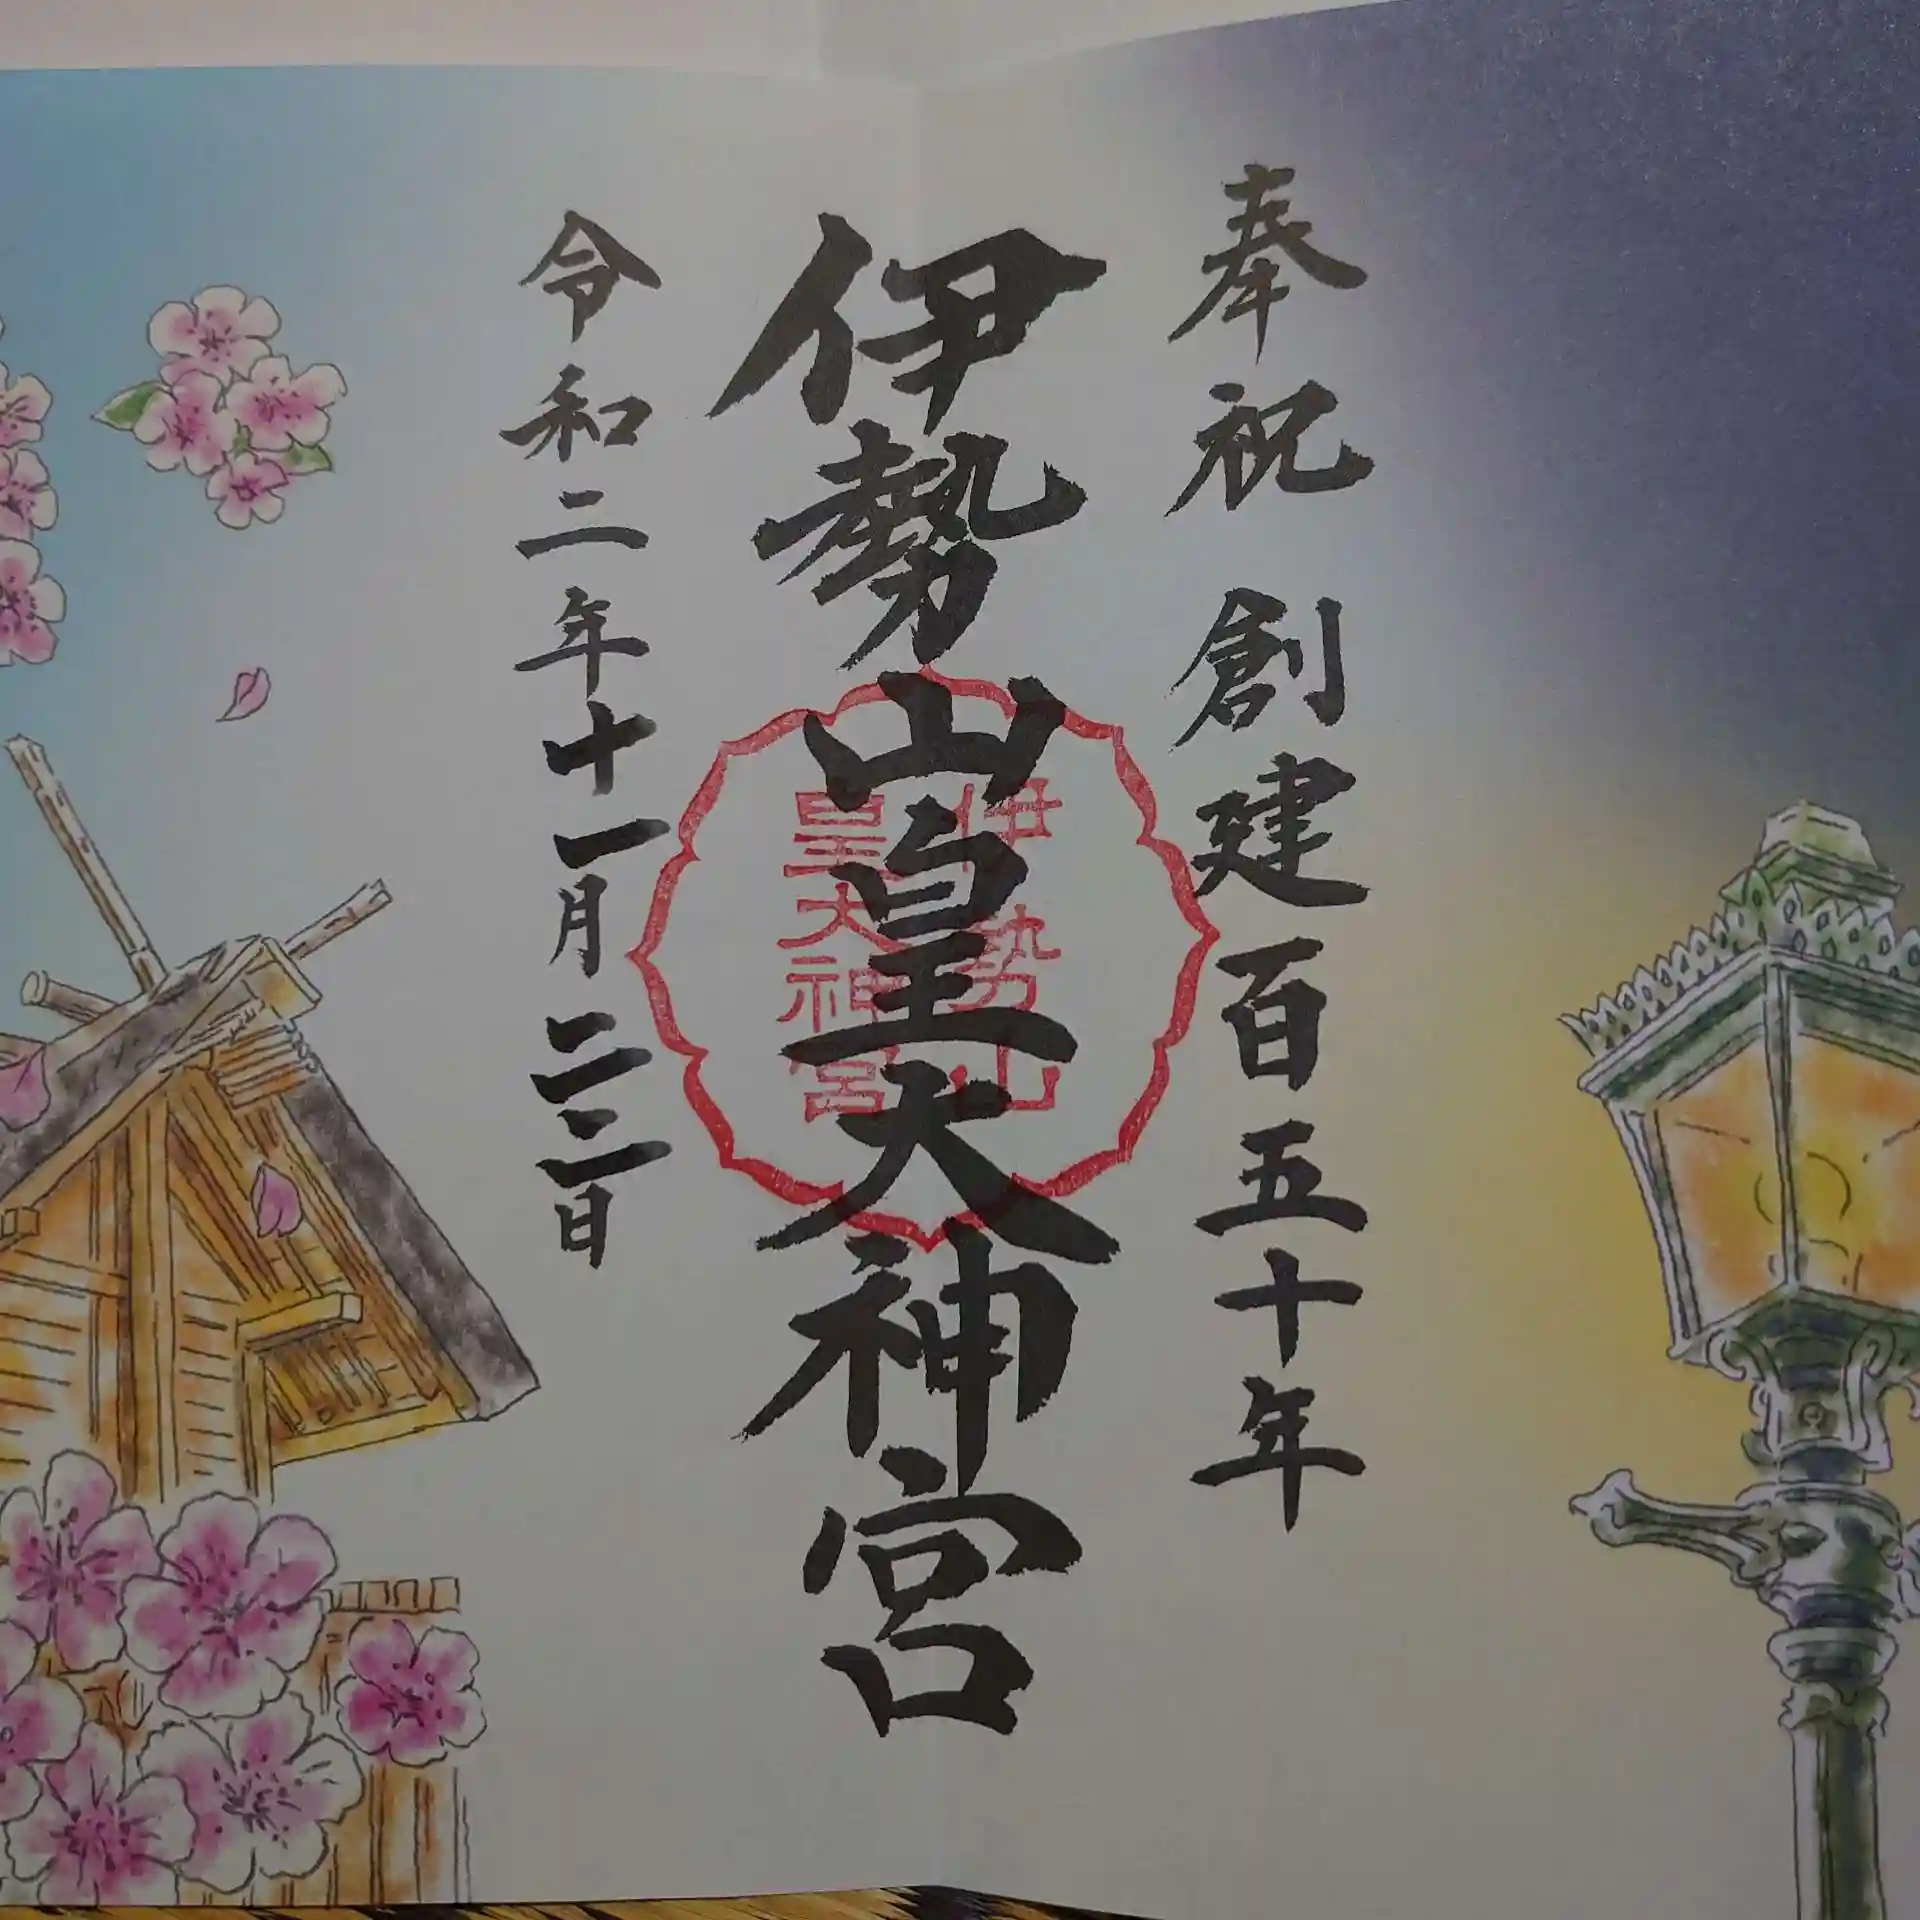 奉祝 創建百五十年
伊勢山皇大神宮
伊勢山
皇大神宮
令和二年十一月二二日